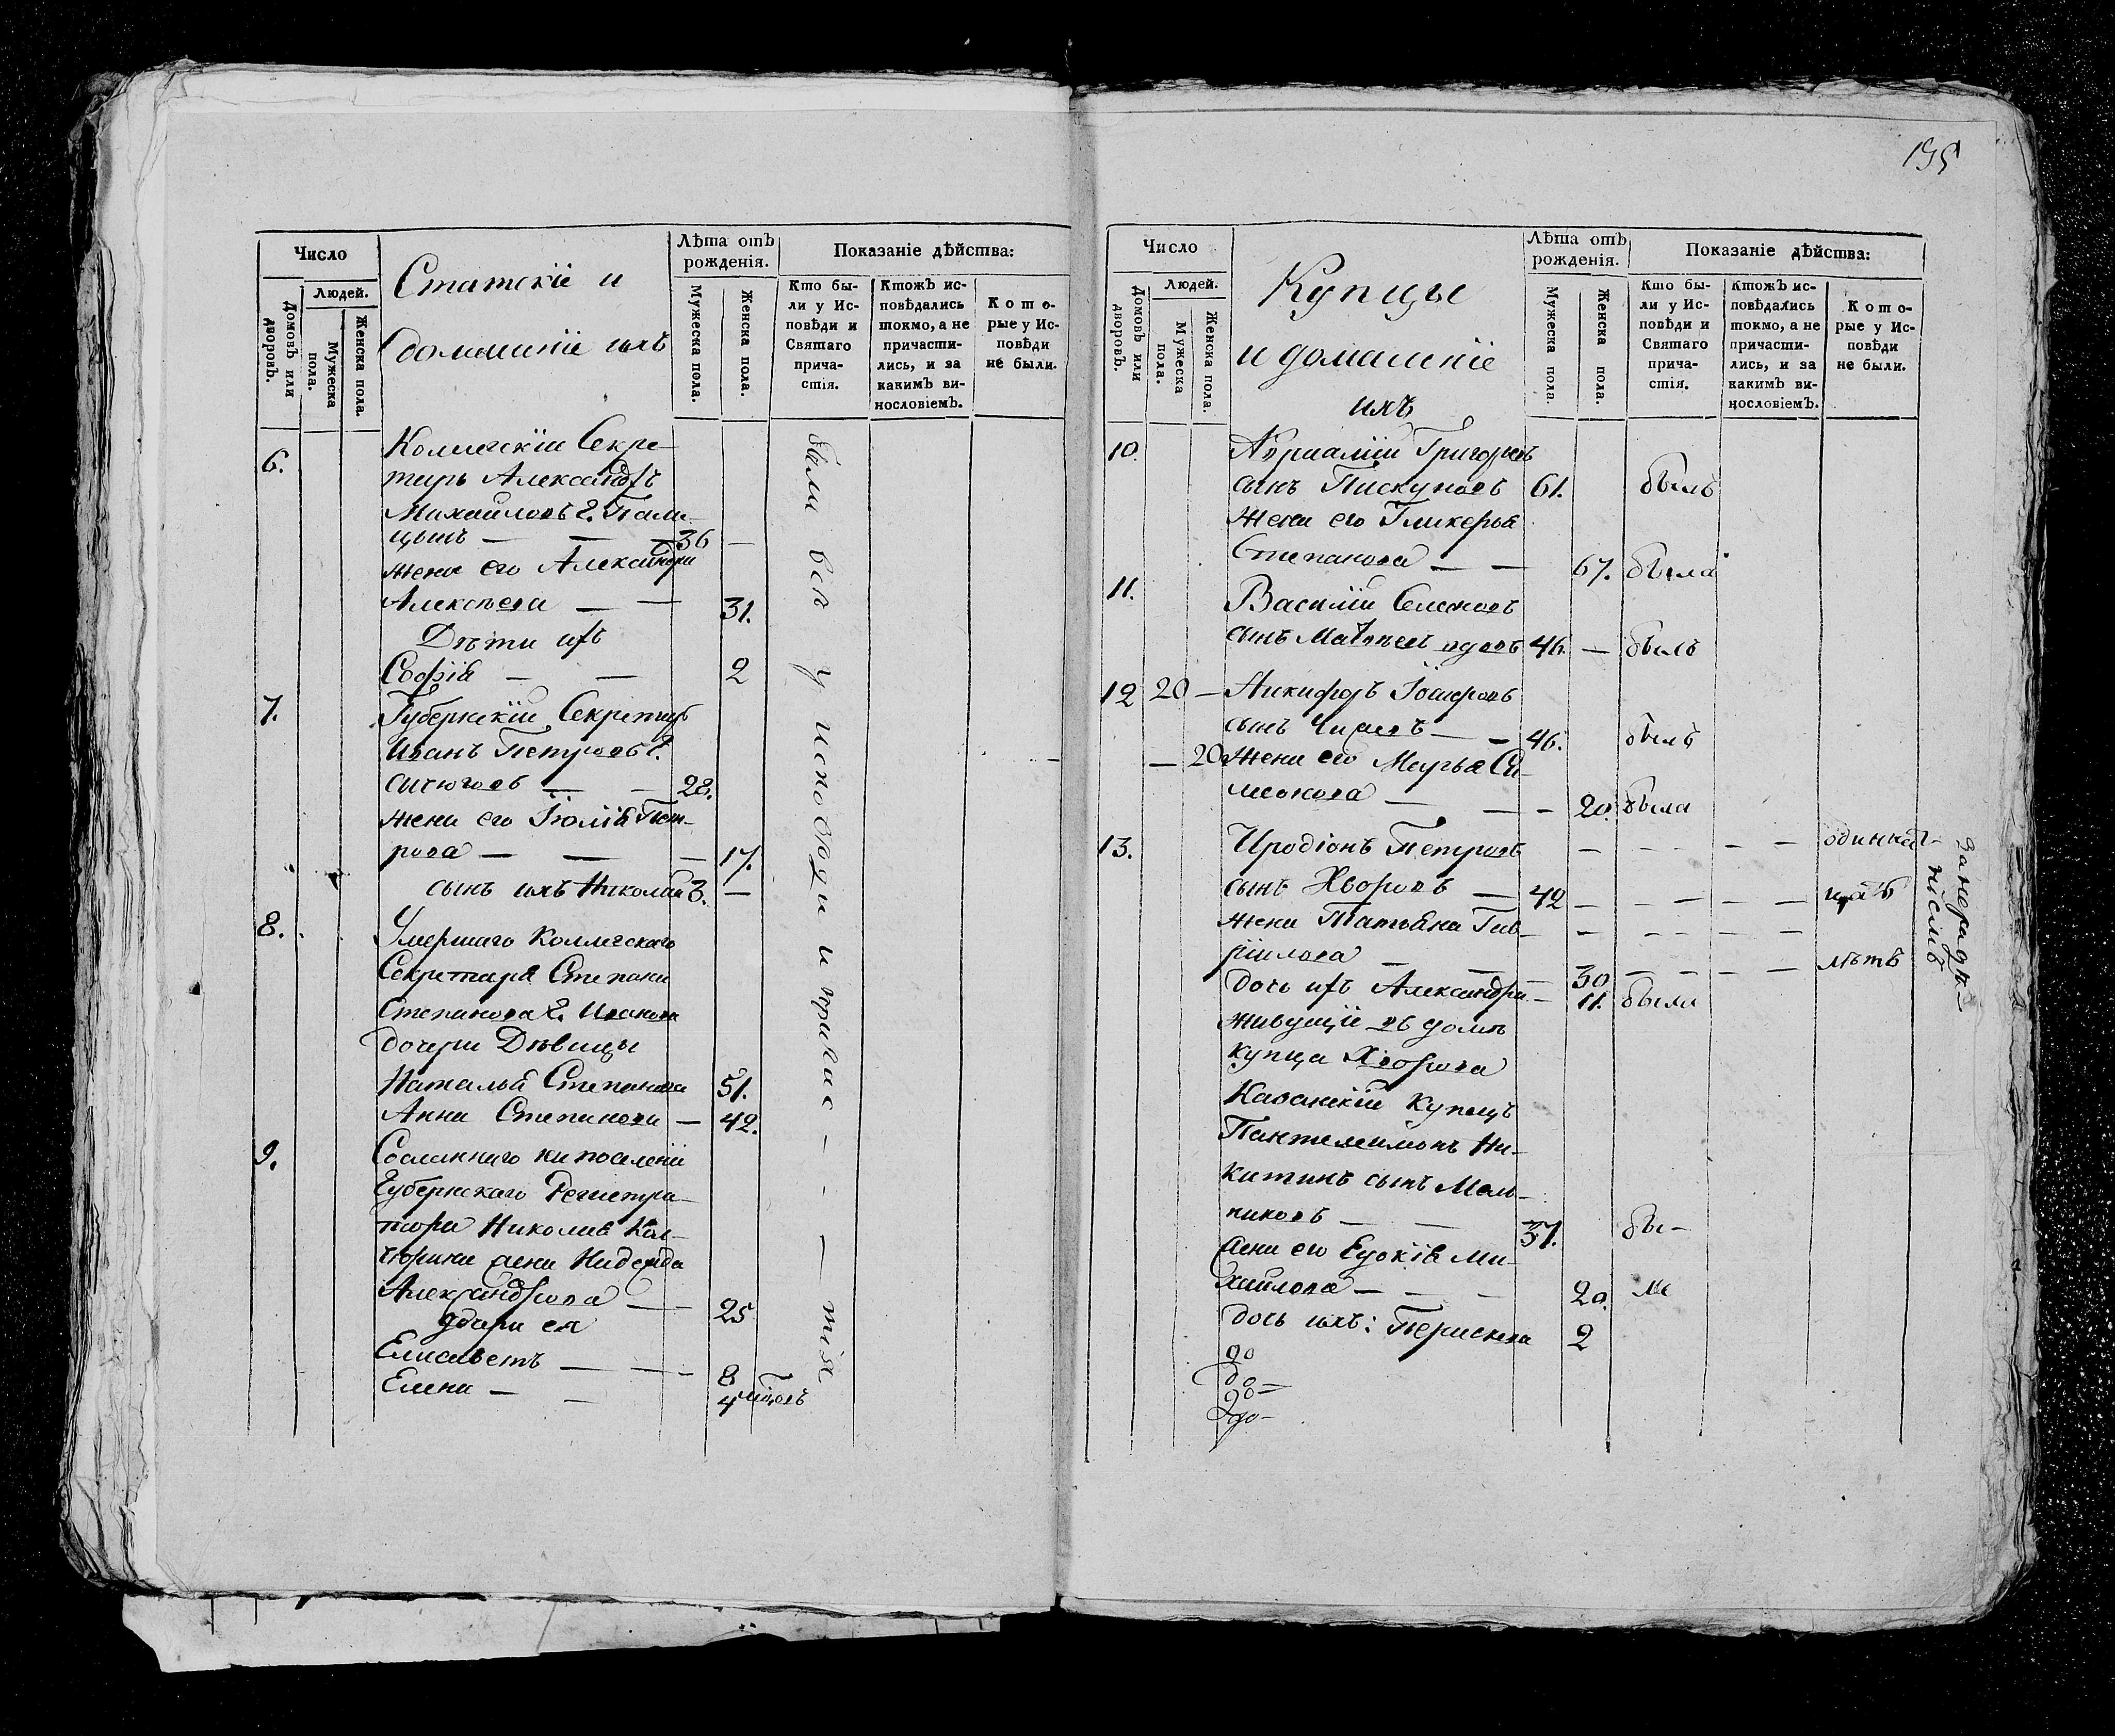 Число
Людей.
Домовъ или дворовъ.
Мужеска пола.
Женска пола.
Статскіе и
домашніе ихъ
Лѣта отъ рожденія.
Мужеска пола.
Женска пола.
Показаніе дѣйства:
Кто бы-
ли у Ис-
повѣди и
Святаго
прича-
стія.
Ктожъ ис-
повѣдались
токмо, а не
причасти-
лись, и за
какимъ ви-
нословіемъ.
Кото-
рые у Ис-
повѣди
не были.
6. Коллегскій Секре-
тарь Александръ
Михайловъ г. Пали-
цынъ — — 36 —
жена его Александра
Алексѣева — — 31.
Дѣти ихъ
Софія — — 2
7. Губернскій Секретарь
Иванъ Петровъ г.
— — 28.
жена его Іюлія Пет-
рова — — — 17.
сынъ ихъ Николай 3. —
8. Умершаго Коллегскаго
Секретаря Степана
Степанова г. Иванова
дочери Дѣвицы
Наталья Степанова 51.
Анна Степанова — 42.
9. Сосланнаго на поселеніе
Губернскаго Регистра-
тора Николая Кал-
жена Надежда
Александрова — — 25
дочери ея
Елисаветъ — — — 8
Елена — — 4
были всѣ у исповѣди и причас — — — — тія
195
Число
Людей.
Домовъ или дворовъ.
Мужеска пола.
Женска пола.
Купцы
и домашніе
ихъ
Лѣта отъ рожденія.
Мужеска пола.
Женска пола.
Показаніе дѣйства:
Кто бы-
ли у Ис-
повѣди и
Святаго
прича-
стія.
Ктожъ ис-
повѣдались
токмо, а не
причасти-
лись, и за
какимъ ви-
нословіемъ.
Кото-
рые у Ис-
повѣди
не были.
10. Григорьевъ
сынъ Пискуновъ 61. былъ
жена его Гликерья
Степанова — — 67. была
11. Василій Семеновъ
сынъ Матвѣевъ вдовъ 46. — былъ
12 20 — Никифоръ
сынъ — — 46. былъ
— 20 жена его Марья Си-
меонова — — — 20. была
13. Иродіонъ Петровъ — — — — — одиннад-
сынъ Хворовъ — 42 — — — — — цать
жена Татьяна Гав- — — — — —
ріилова — — — 30 — — — — лѣтъ
дочь ихъ Александра — 11. была
живущіе въ домѣ
купца Хворова
Казанскій купецъ
Пантелеимонъ Ни-
китинъ сынъ Мель-
никовъ — — 37. бы-
жена его Евдокія Ми-
хайлова — — — 20. ли
дочь ихъ: 2
до
до —
до —
до —